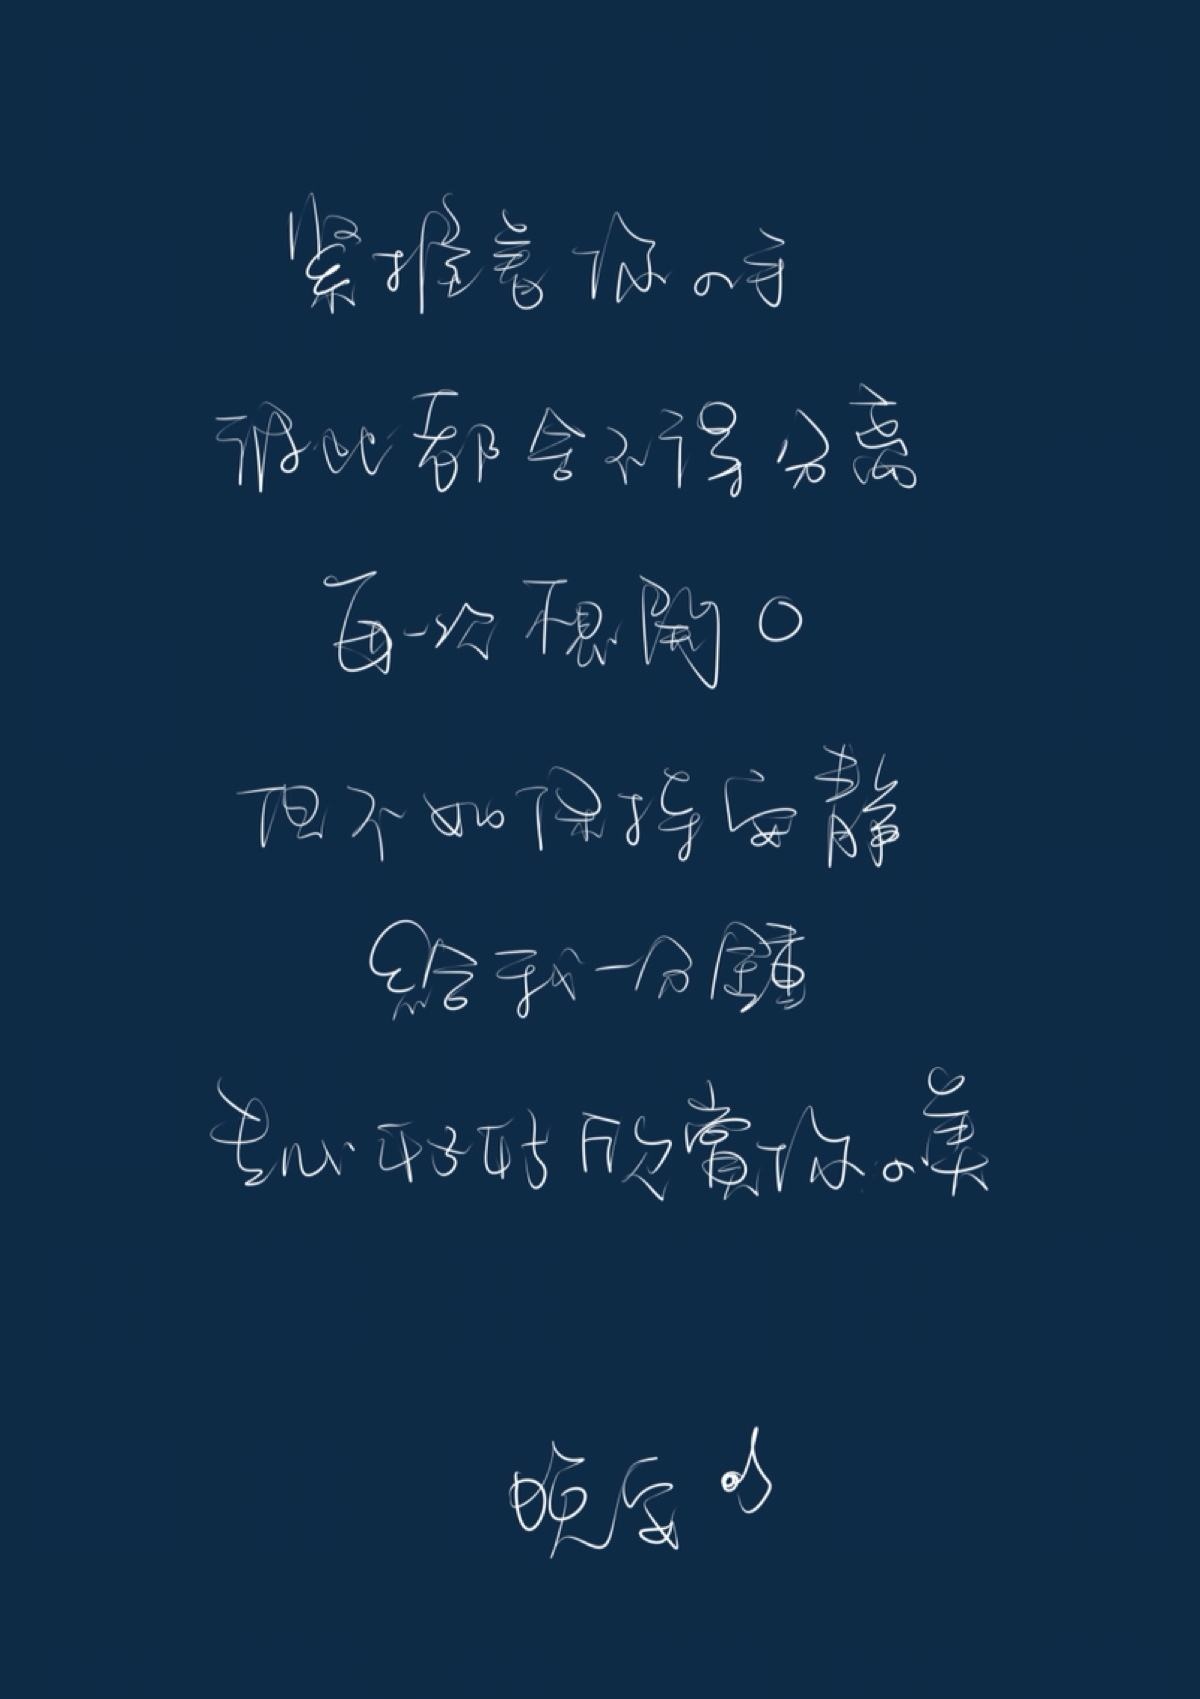 緊握著你的手
彼此都捨不得分離
每一次想開口
但不如保持安靜
給我一分鐘
專心好好欣賞你的美
晚安